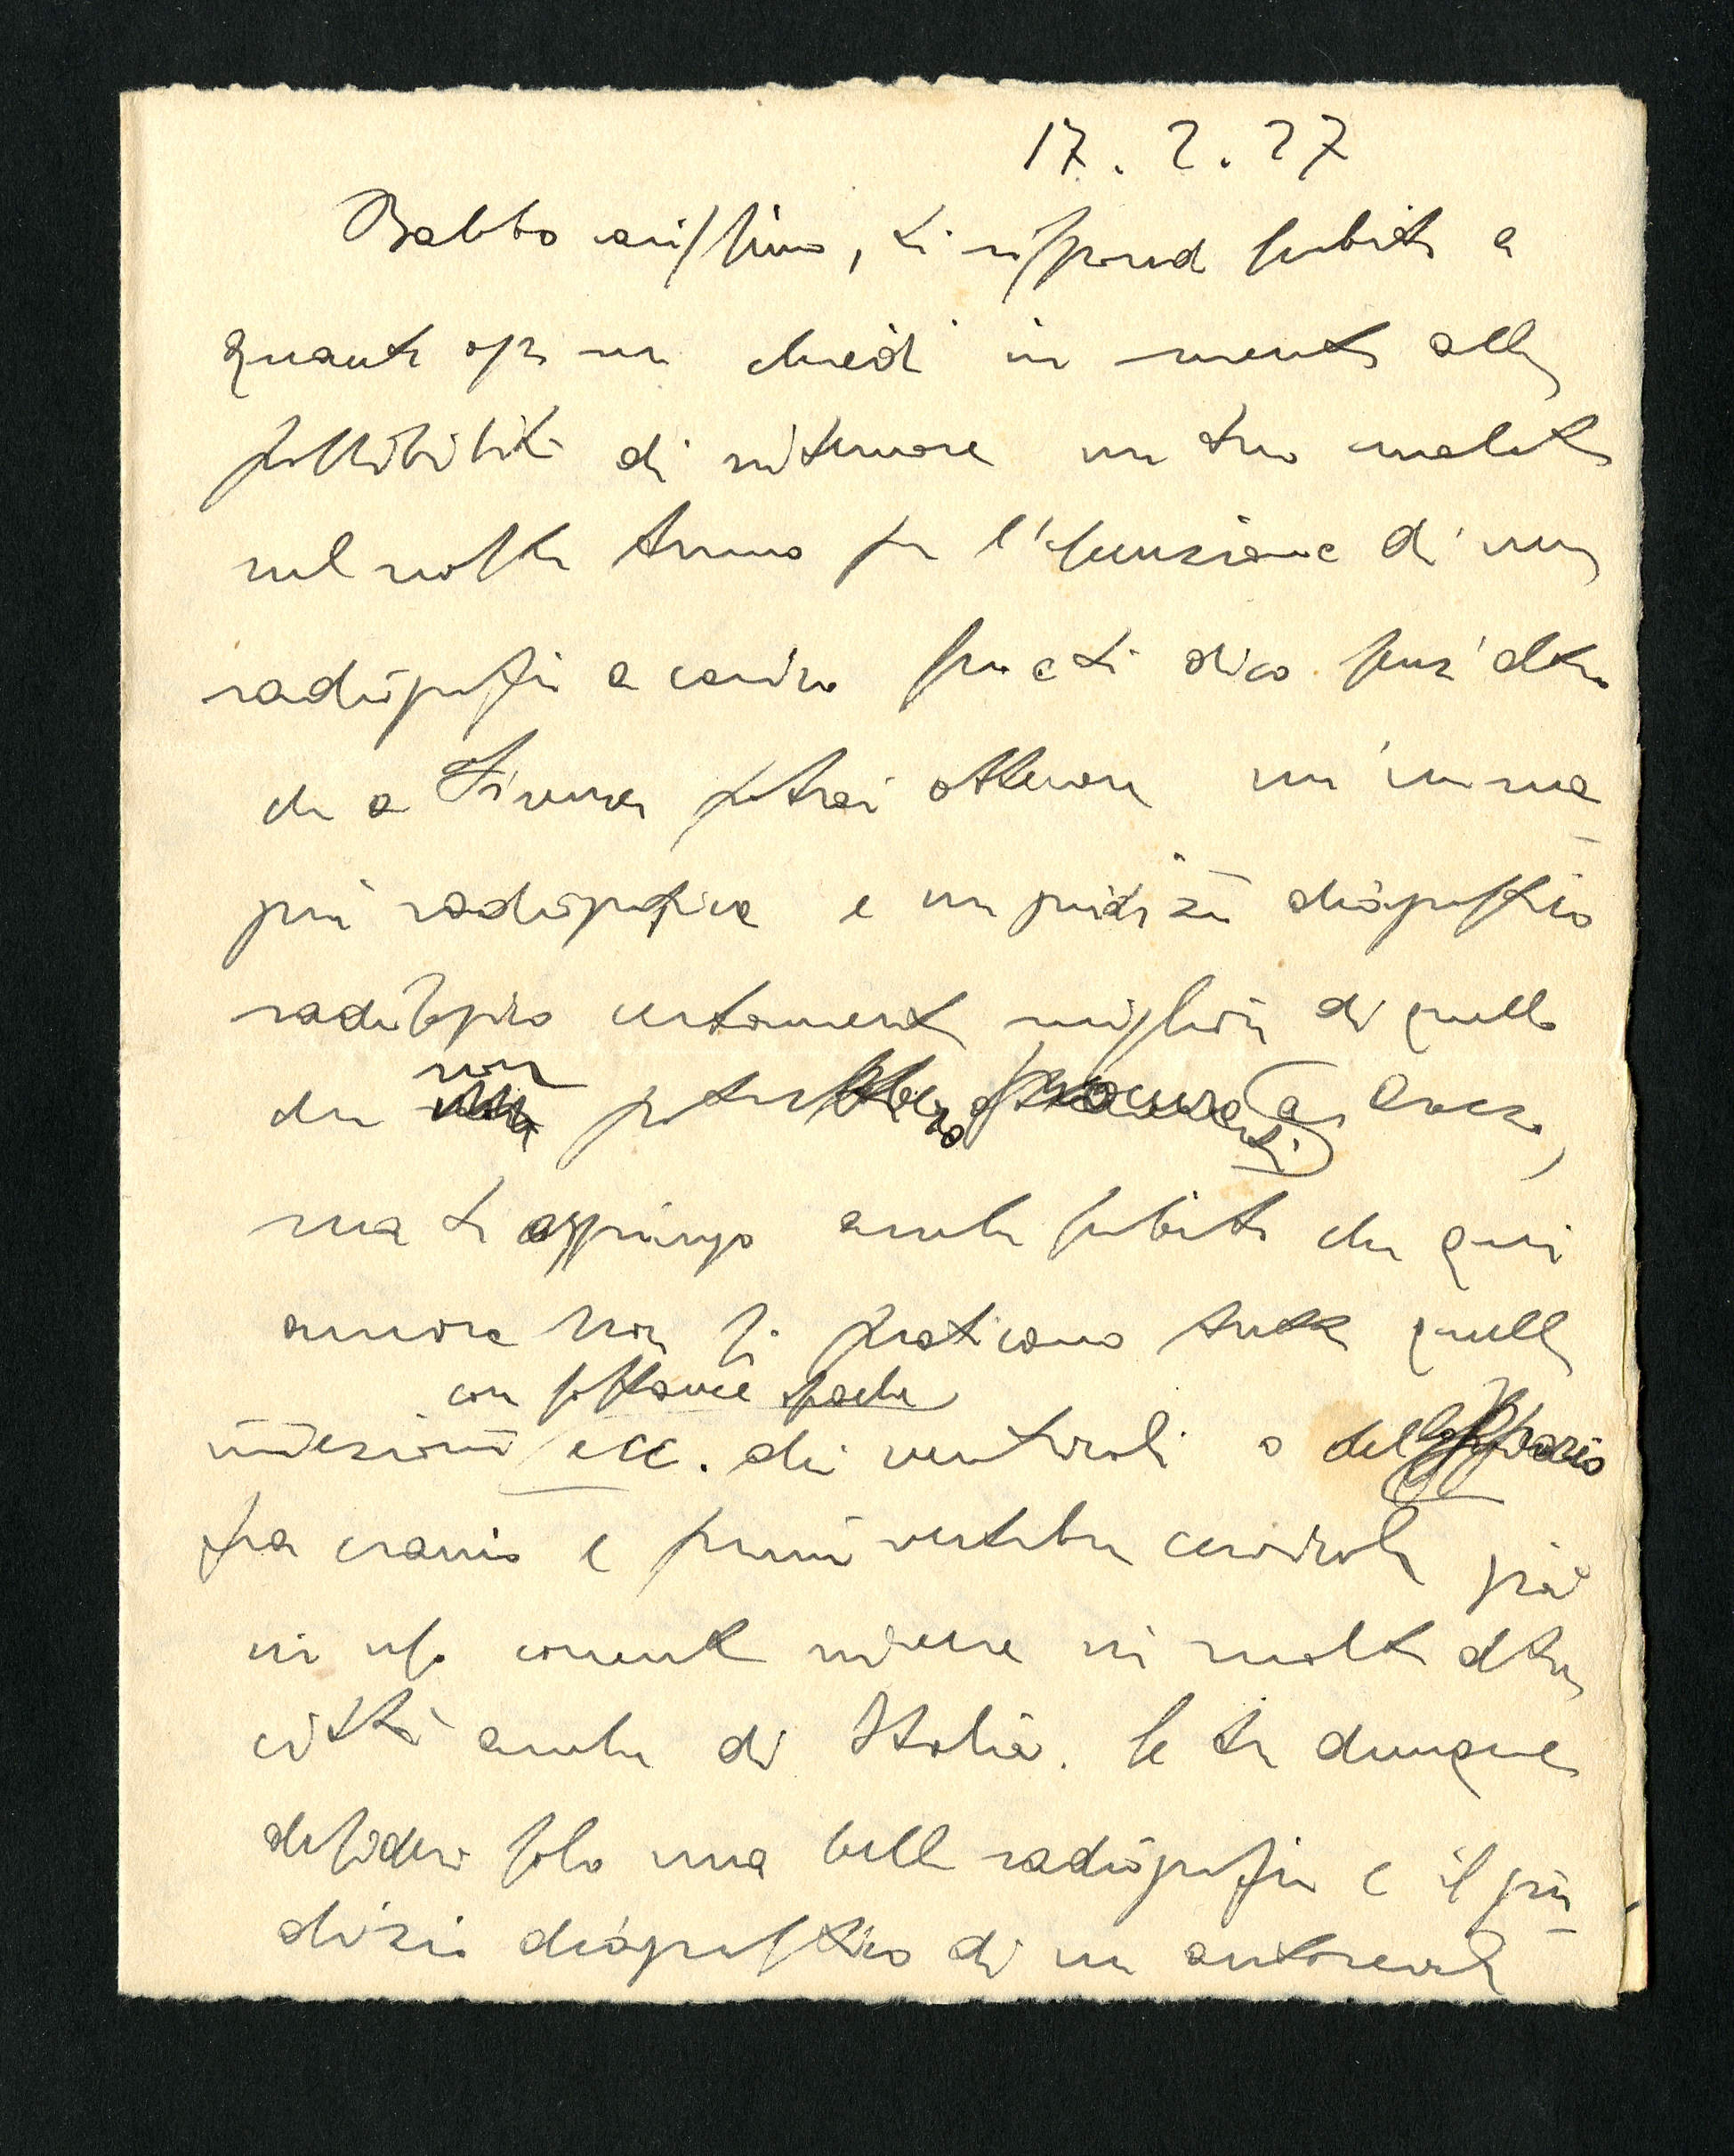 17. 2. 27
Babbo carissimo, ti rispondo subito a
quanto oggi mi chiedi in merito alla
possibilità di ritornare un tuo malato
nel nostro turno per l'esecuzione di una
radiografia a carico suo e ti dico senz'altro
che a Firenze potrai ottenere un'imma-
gine radiografica e un giudizio diagnostico
radiologico certamente migliore di quello
che non potrebbero procurarti a Arezzo,
ma ti aggiungo anche subito che qui
ancora non si praticano tutte quelle
con sostanze opache
iniezioni ecc. dei ventricoli o dello spazio
fra cranio e prime vertebre cervicali già
in uso corrente invece in molte altre
città anche di Italia. Se tu dunque
desideri solo una bella radiografia e il giu-
dizio diagnostico di un autorevole